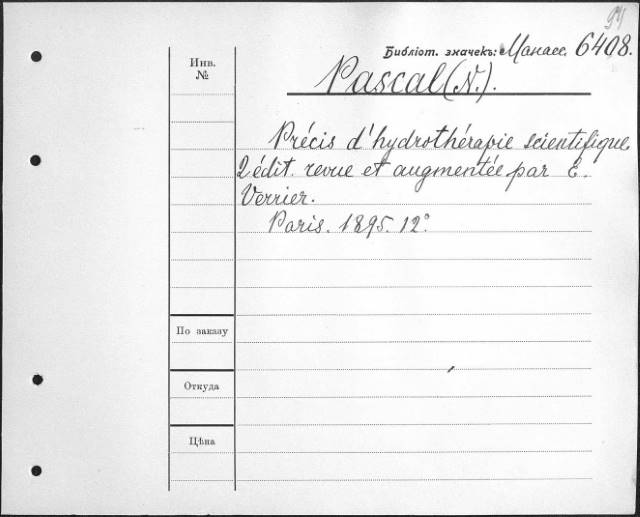 94
Библіот. значекъ: Манасс. 6408.
Инв.
№
Pascal (N.).
Précis d'hydrothérapie scientifique
2 édit. revue et augmentée par E.
Verrier.
Paris. 1895. 12°
По заказу
Откуда
Цѣна